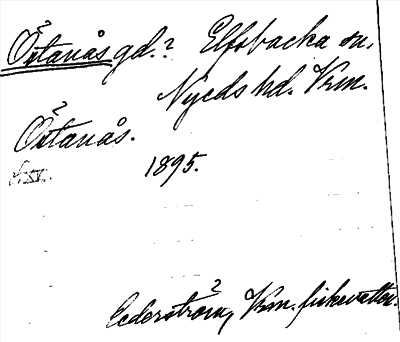 Östanås gd.? Elfsbacka sn.
Nyeds hd. Vrm.
Östanås.
1895.
Cederström, Vrm. fiskevatten.